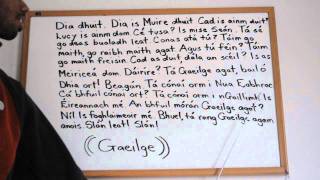 Dia dhuit. Dia is Muire dhuit Cad is ainm duit?
Lucy is ainm dom Cé tusa? Is mise Seán. Tá sé
go deas bualadh leat Conas atá tú? Táim go
maith, go raibh maith agat. Agus tú féin? Táim
go maith freisin Cad as duit, dála an scéil? Is as
Meiriceá dom. Dáiríre? Tá Gaeilge agat, bail ó
Dhia ort! Beagán. Tá cónaí orm i Nua Eabhrac
Cá bhfuil cónaí ort? Tá cónaí orm i nGaillimh Is
Éireannach mé An bhfuil mórán Gaeilge agat?
Níl. Is foghlaimeoir mé Bhuel, tá rang Gaeilge agam
anois Slán leat! Slán!
((Gaeilge))